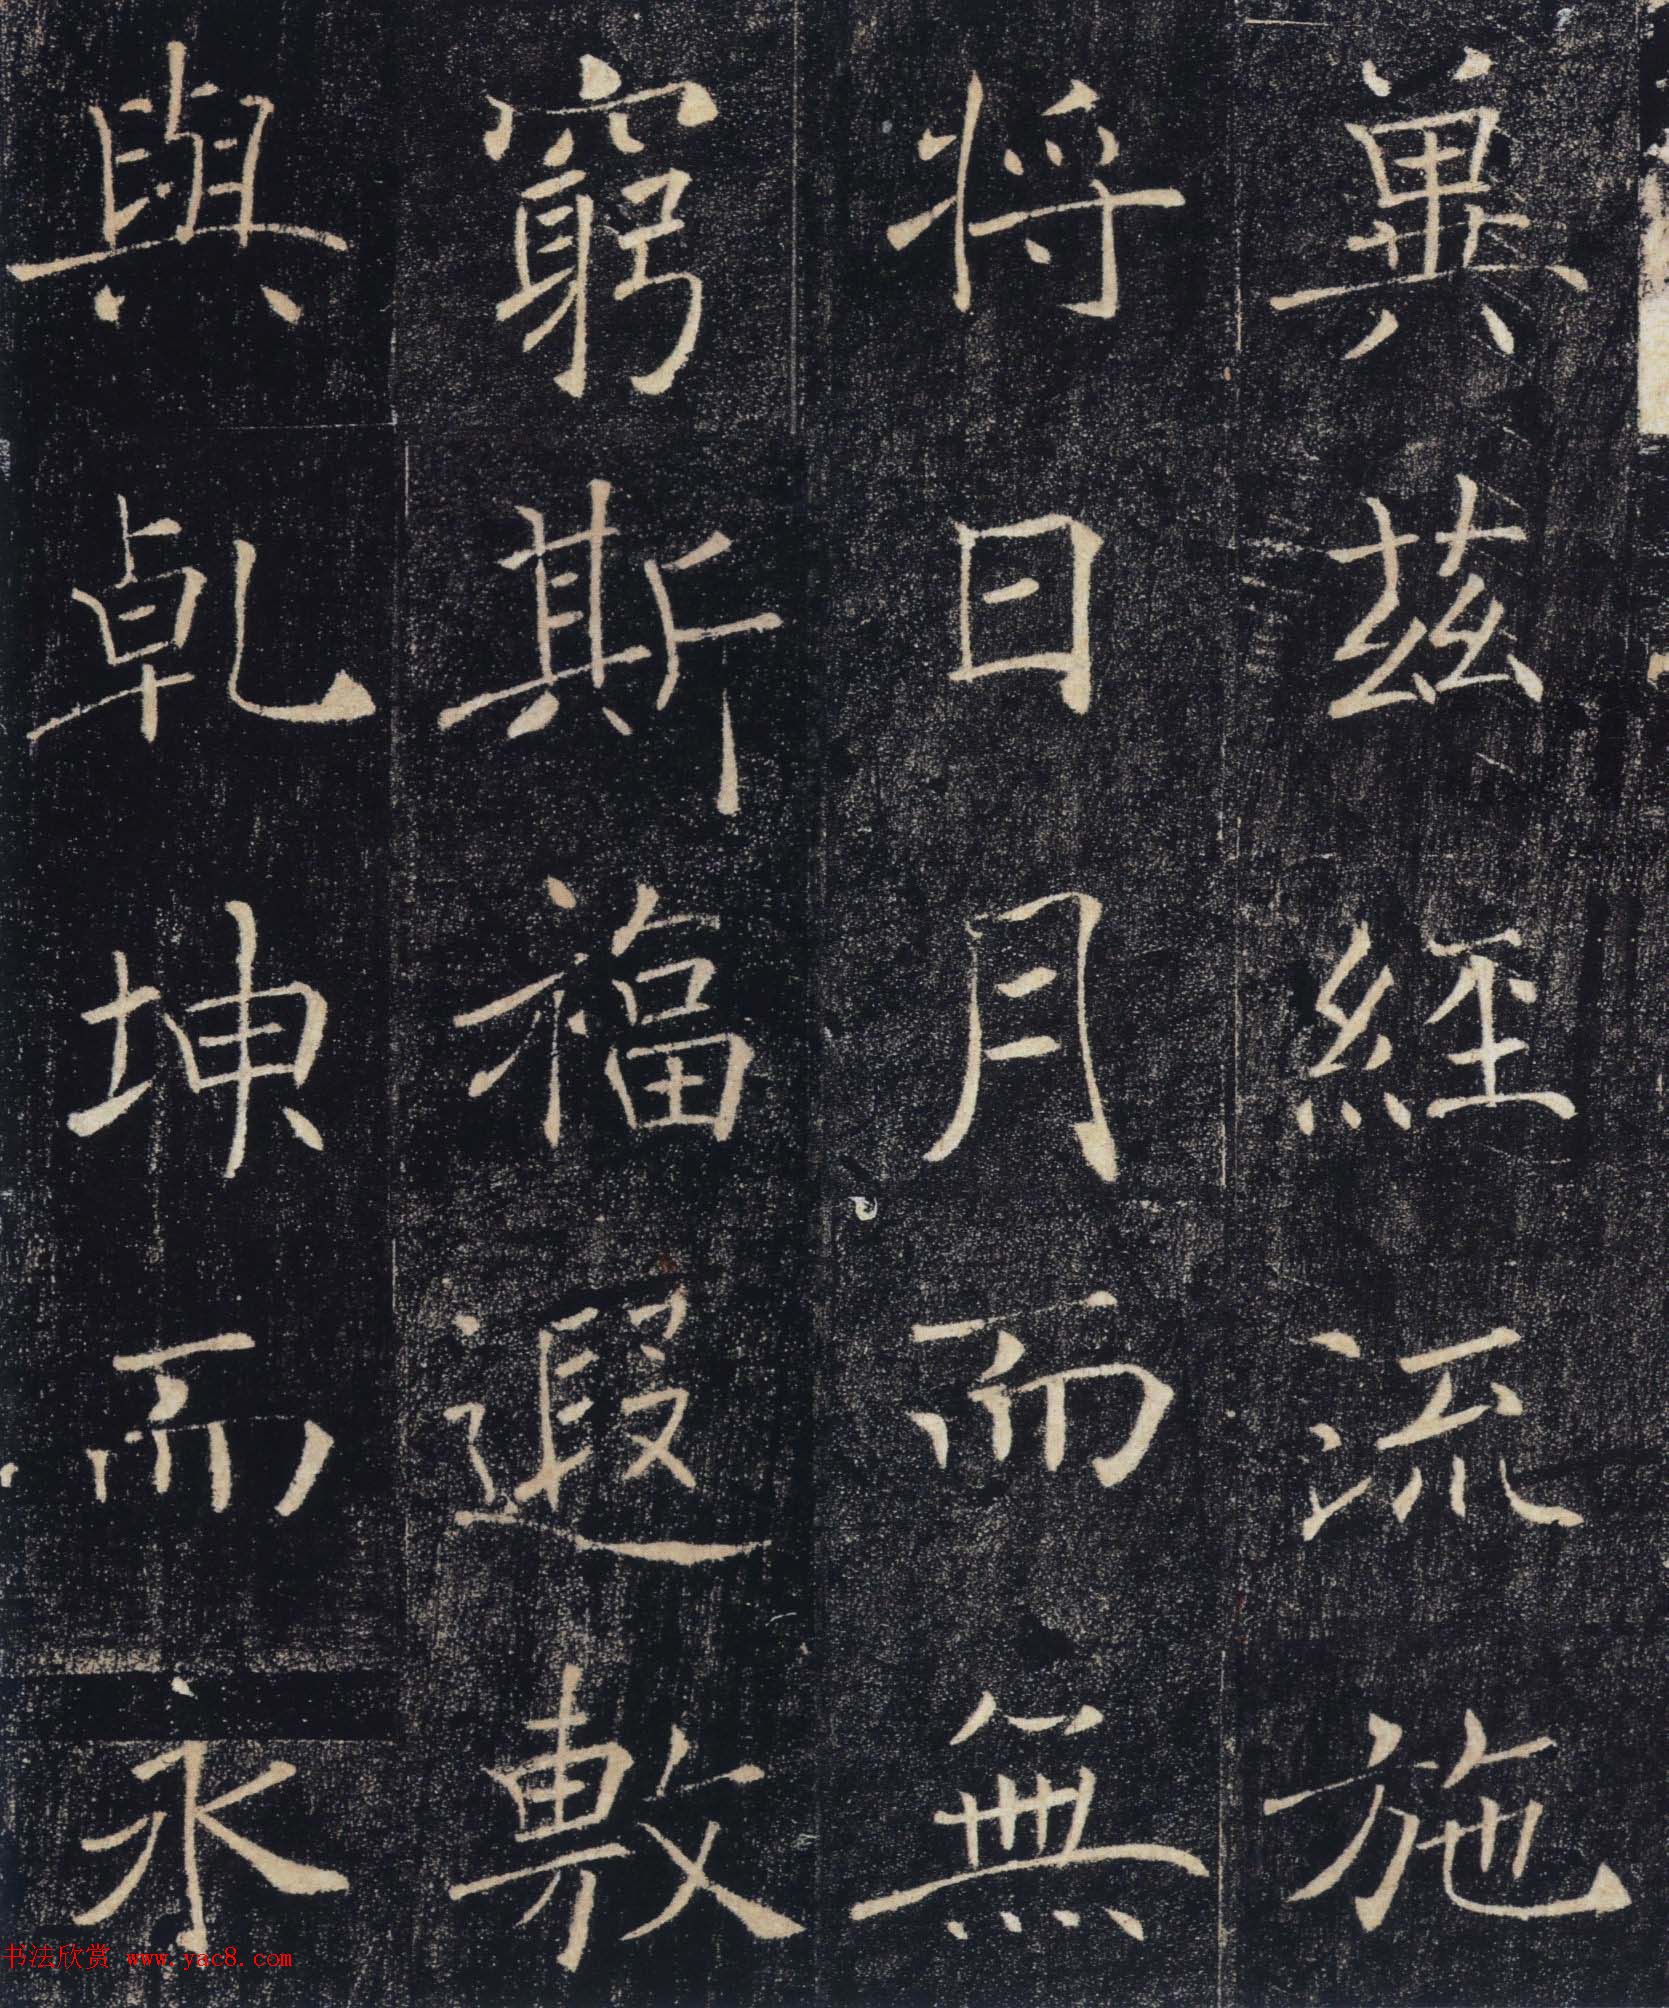 冀茲經流施
将日月而無
窮斯福遐敷
與乹坤而永
书法欣赏 www.yac8.com